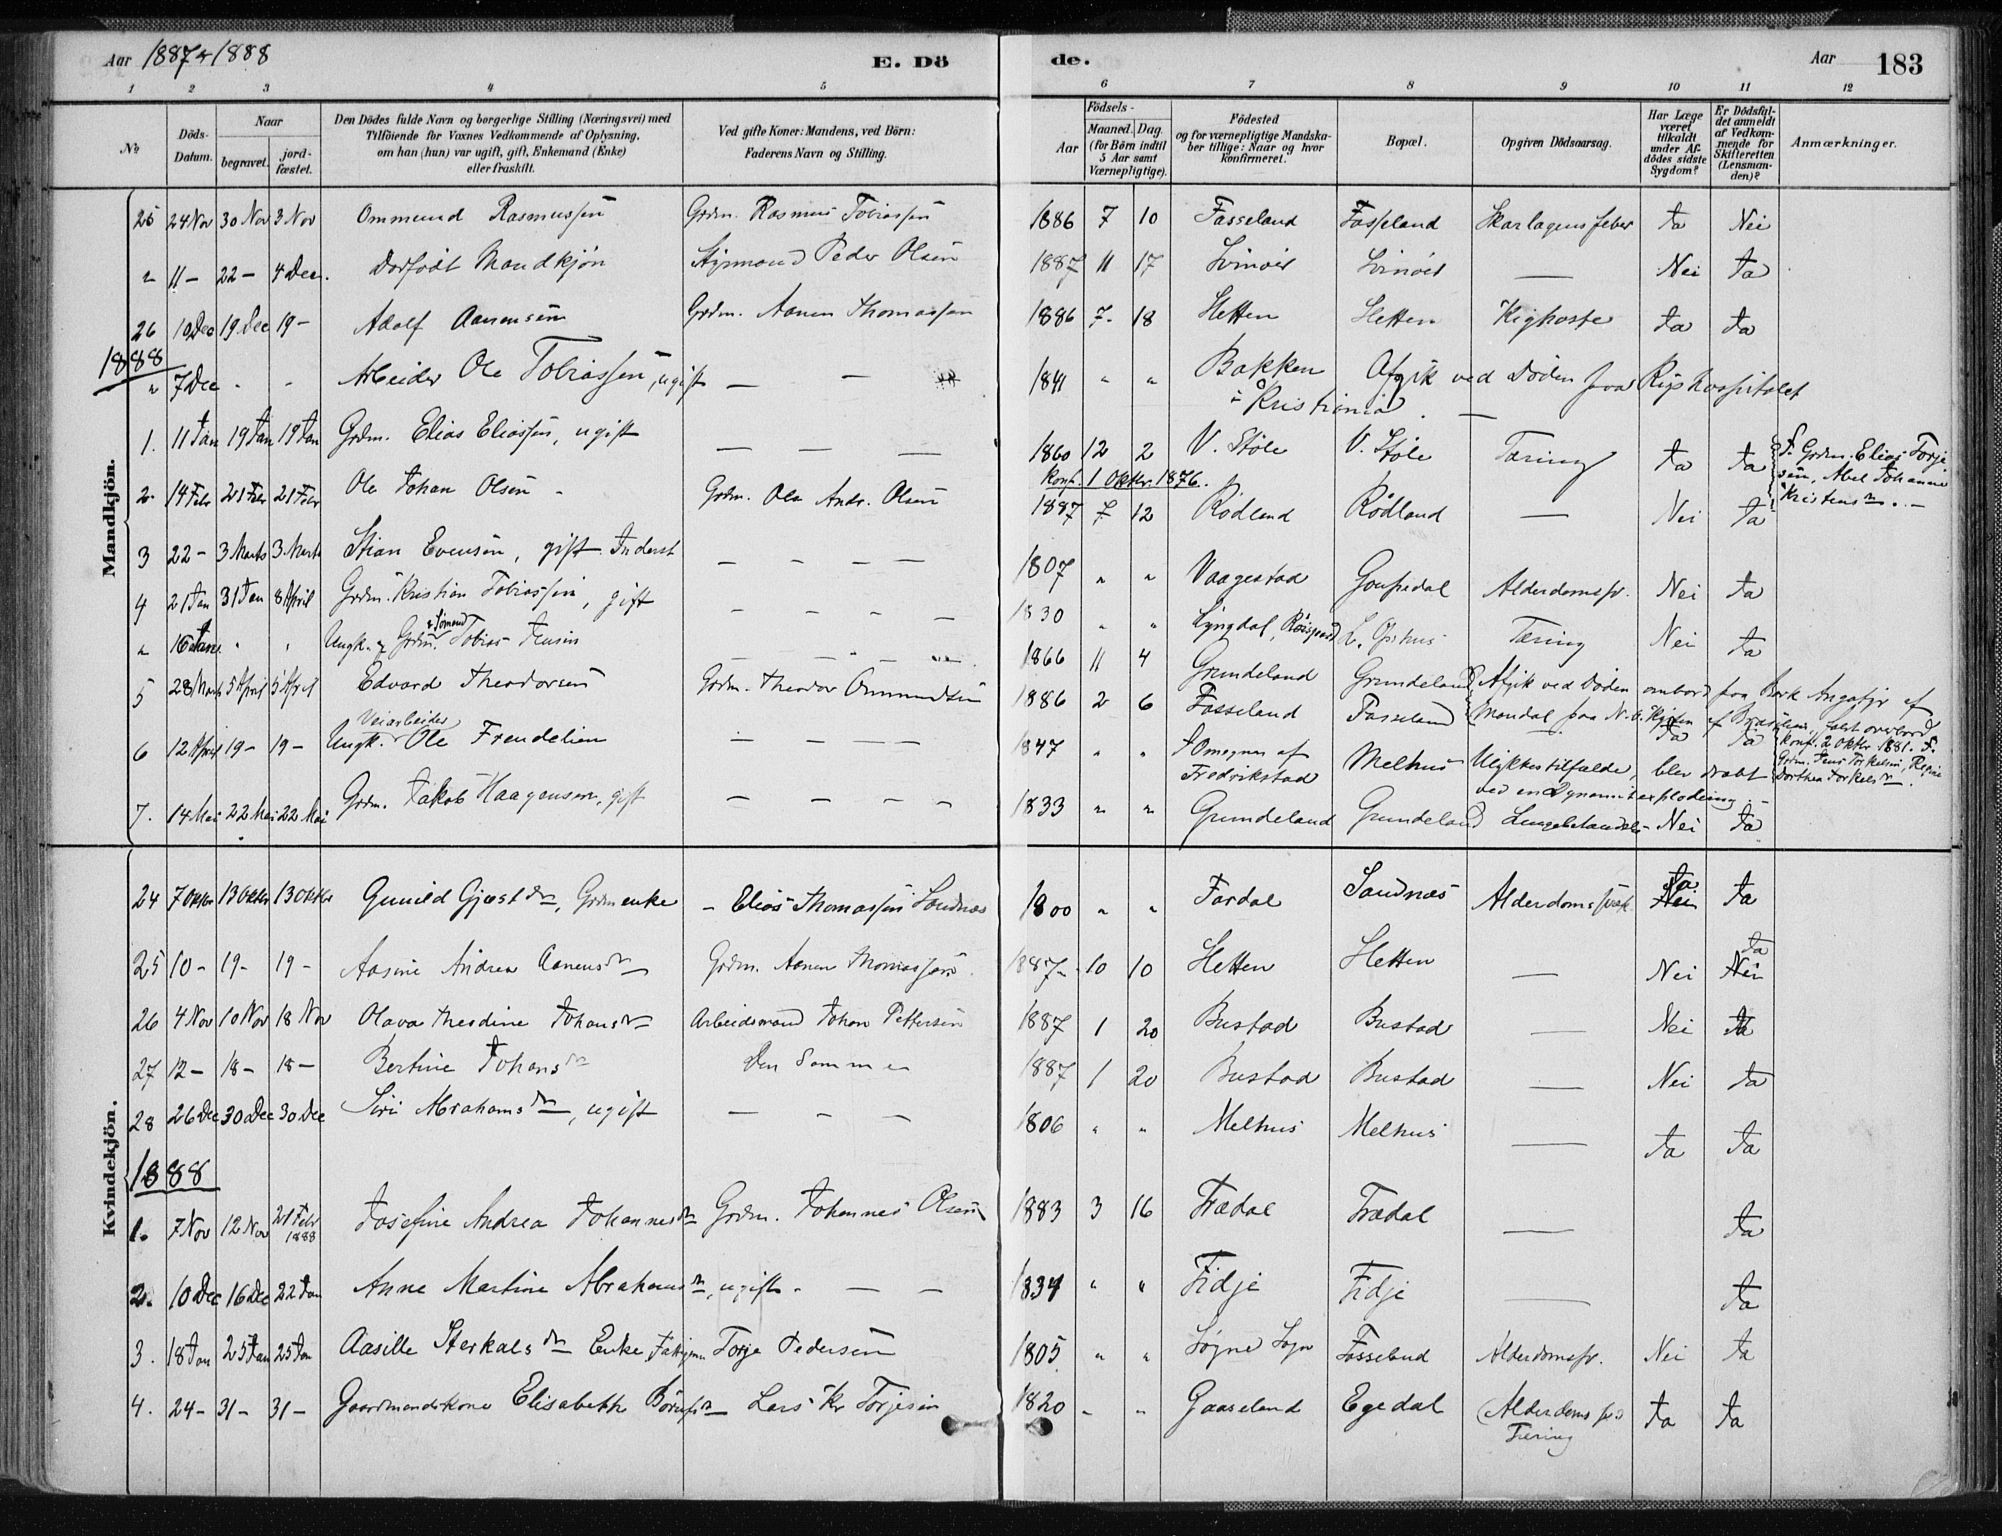 Aar 1887 & 1888 E. Dö
de. Aar 183
1 2 3 4 5 6 7 8 9 10 11 12
No Döds-Datum. Naar begravet. jordfæstet. Den Dödes fulde Navn og borgerlige Stilling (Næringsvei) med Tilföiende for Voxnes Vedkommende af Oplysning, om han (hun) var ugift, gift, Enkemand (Enke) eller fraskilt. Ved gifte Koner: Mandens, ved Börn: Faderens Navn og Stilling. Aar Födsels- Maaned. Dag. (for Börn indtil 5 Aar samt Værnepligtige). Födested og for værnepligtige Mandskaber tillige: Naar og hvor konfirmeret. Bopæl. Opgiven Dödsaarsag. Har Læge været tilkaldt under Afdödes sidste Sygdom? Er Dödsfaldet anmeldt af Vedkommende for Skifteretten (Lensmanden)? Anmærkninger.
Mandkjön.
25 24 Nov 30 Nov 3 Nov Ommund Rasmussen Grdm. Rasmus Tobiassen 1886 7 10 Fasseland Fasseland Skarlagensfeber Ja Nei
" 11 - 22 - 4 Dec. Dødfødt Mandkjön Peder Olsen 1887 11 17 Svinøer Svinøer — Nei Ja
26 10 Dec 19 Dec 19 - Adolf Aanensen Grdm. Aanen Thomassen 1886 7 18 Hetten Hetten Kighoste Ja Ja
1888
" 7 Dec " " Arbeider Ole Tobiassen, ugift — — 1841 " " Bakken Afgik ved Döden paa Rigshospitalet
i Kristiania. —
1. 11 Jan 19 Jan 19 Jan Grdm. Elias Eliassen, ugift — — — 1860 12 2 V. Støle V. Støle Tæring Ja Ja F. Grdm. Elias Torjesen, Abel Johanne Kristensdtr. -
Konf. 1 Oktbr. 1876.
2. 14 Febr 21 Febr 21 Febr Ole Johan Olsen - Grdm. Ole Andr. Olsen 1887 7 12 Rødland Rødland — Nei Ja
3 22 - 3 Marts 3 Marts Stian Evensen, gift Inderst — — — — 1807 " " Vaagestad Nei Ja Alderdomssv.
4 21 Jan 31 Jan 8 April Grdm. Kristian Tobiassen, gift — — — — 1830 " " Lyngdal, Tæring Nei Ja
" 16 Jan " " Ungk. & Grdm. & Sømand Tobias Jensen — — — — 1866 11 4 Grundeland Grundeland Afgik ved Döden ombord paa Bark
5 28 Marts 5 April 5 April Edvard Theodorsen Grdm. Theodor Ommundsen 1886 2 6 Fasseland Fasseland Mandal paa N.Ø. Kysten af Brasilien, faldt overbord
Konf. 2 Oktbr. 1881. F. Grdm. Jens Torkelsen, Regine Dorthea Torkelsdtr.
6 12 April 19 - 19 - Ungk. Veiarbeider Ole Frendelien — — — — 1847 " " Omegnen af Fredrikstad Melhus Ulykkestilfælde, blev dræbt Ja Ja
ved en Dynamitexplodering. -
7. 14 Mai 22 Mai 22 Mai Grdm. Jakob Haagensen, gift — — — — 1833 " " Grundeland Grundeland Nei Ja
Kvindekjön.
24 7 Oktbr 13 Oktbr 13 Oktbr Gunild Gjestdtr, Grdmenke - Elias Thomassen Sandnæs 1800 " " Fardal Sandnæs Alderdomssvæk. Nei Ja Ja
25 10 - 19 - 19 - Aasine Andrea Aanensdtr Grdm. Aanen Thomassen 1887 10 10 Hetten Hetten — Nei Nei Ja
26 4 Nov 10 Nov 18 Nov Olava Thesdine Johansdtr Arbeidsmand Johan Pettersen 1887 1 20 Bustad Bustad — Nei Ja
27 12 - 18 - 18 - Bertine Johansdtr Den Samme 1887 1 20 Bustad Bustad — Nei Ja
28 26 Dec 30 Dec 30 Dec Siri Abrahamsdtr, ugift — — — 1806 " " Melhus Melhus — Ja Ja
1888
1. 7 Nov 12 Nov 21 Febr 1888 Josefine Andrea Johannesdtr Grdm. Johannes Olsen 1883 3 16 Trædal Trædal — Ja
2. 10 Dec 16 Dec 22 Jan Anne Martine Abrahamsdtr, ugift. — — 1834 " " Fidje Fidje — Ja
3. 18 Jan 25 Jan 25 Jan Aasille Sterkalsdtr Enke, Torje Pedersen 1805 " " Søgne Sogn Fasseland Alderdomssv. Nei Ja
4. 24 - 31 - 31 - Gaardmandskone Elisabeth Lars Kr. Torjesen 1820 " " Gaaseland Egedal Alderdomssv. Tæring Ja Ja